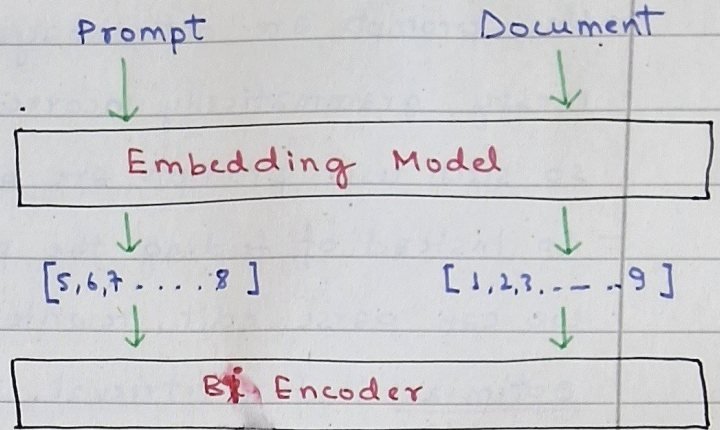 Prompt Document
Embedding Model
[5,6,7 . . . . 8 ] [ 1,2,3. — . . 9 ]
Bi Encoder